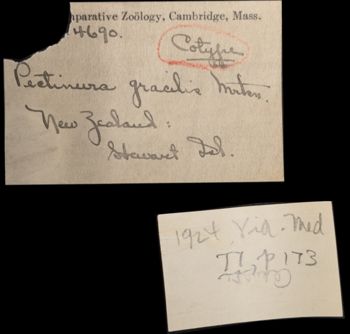 mparative Zoölogy, Cambridge, Mass.
4690.
Cotype
Pectinura gracilis Mrtsn.
New Zealand:
Stewart Isl.
1924 Vid. Med
77 p 173